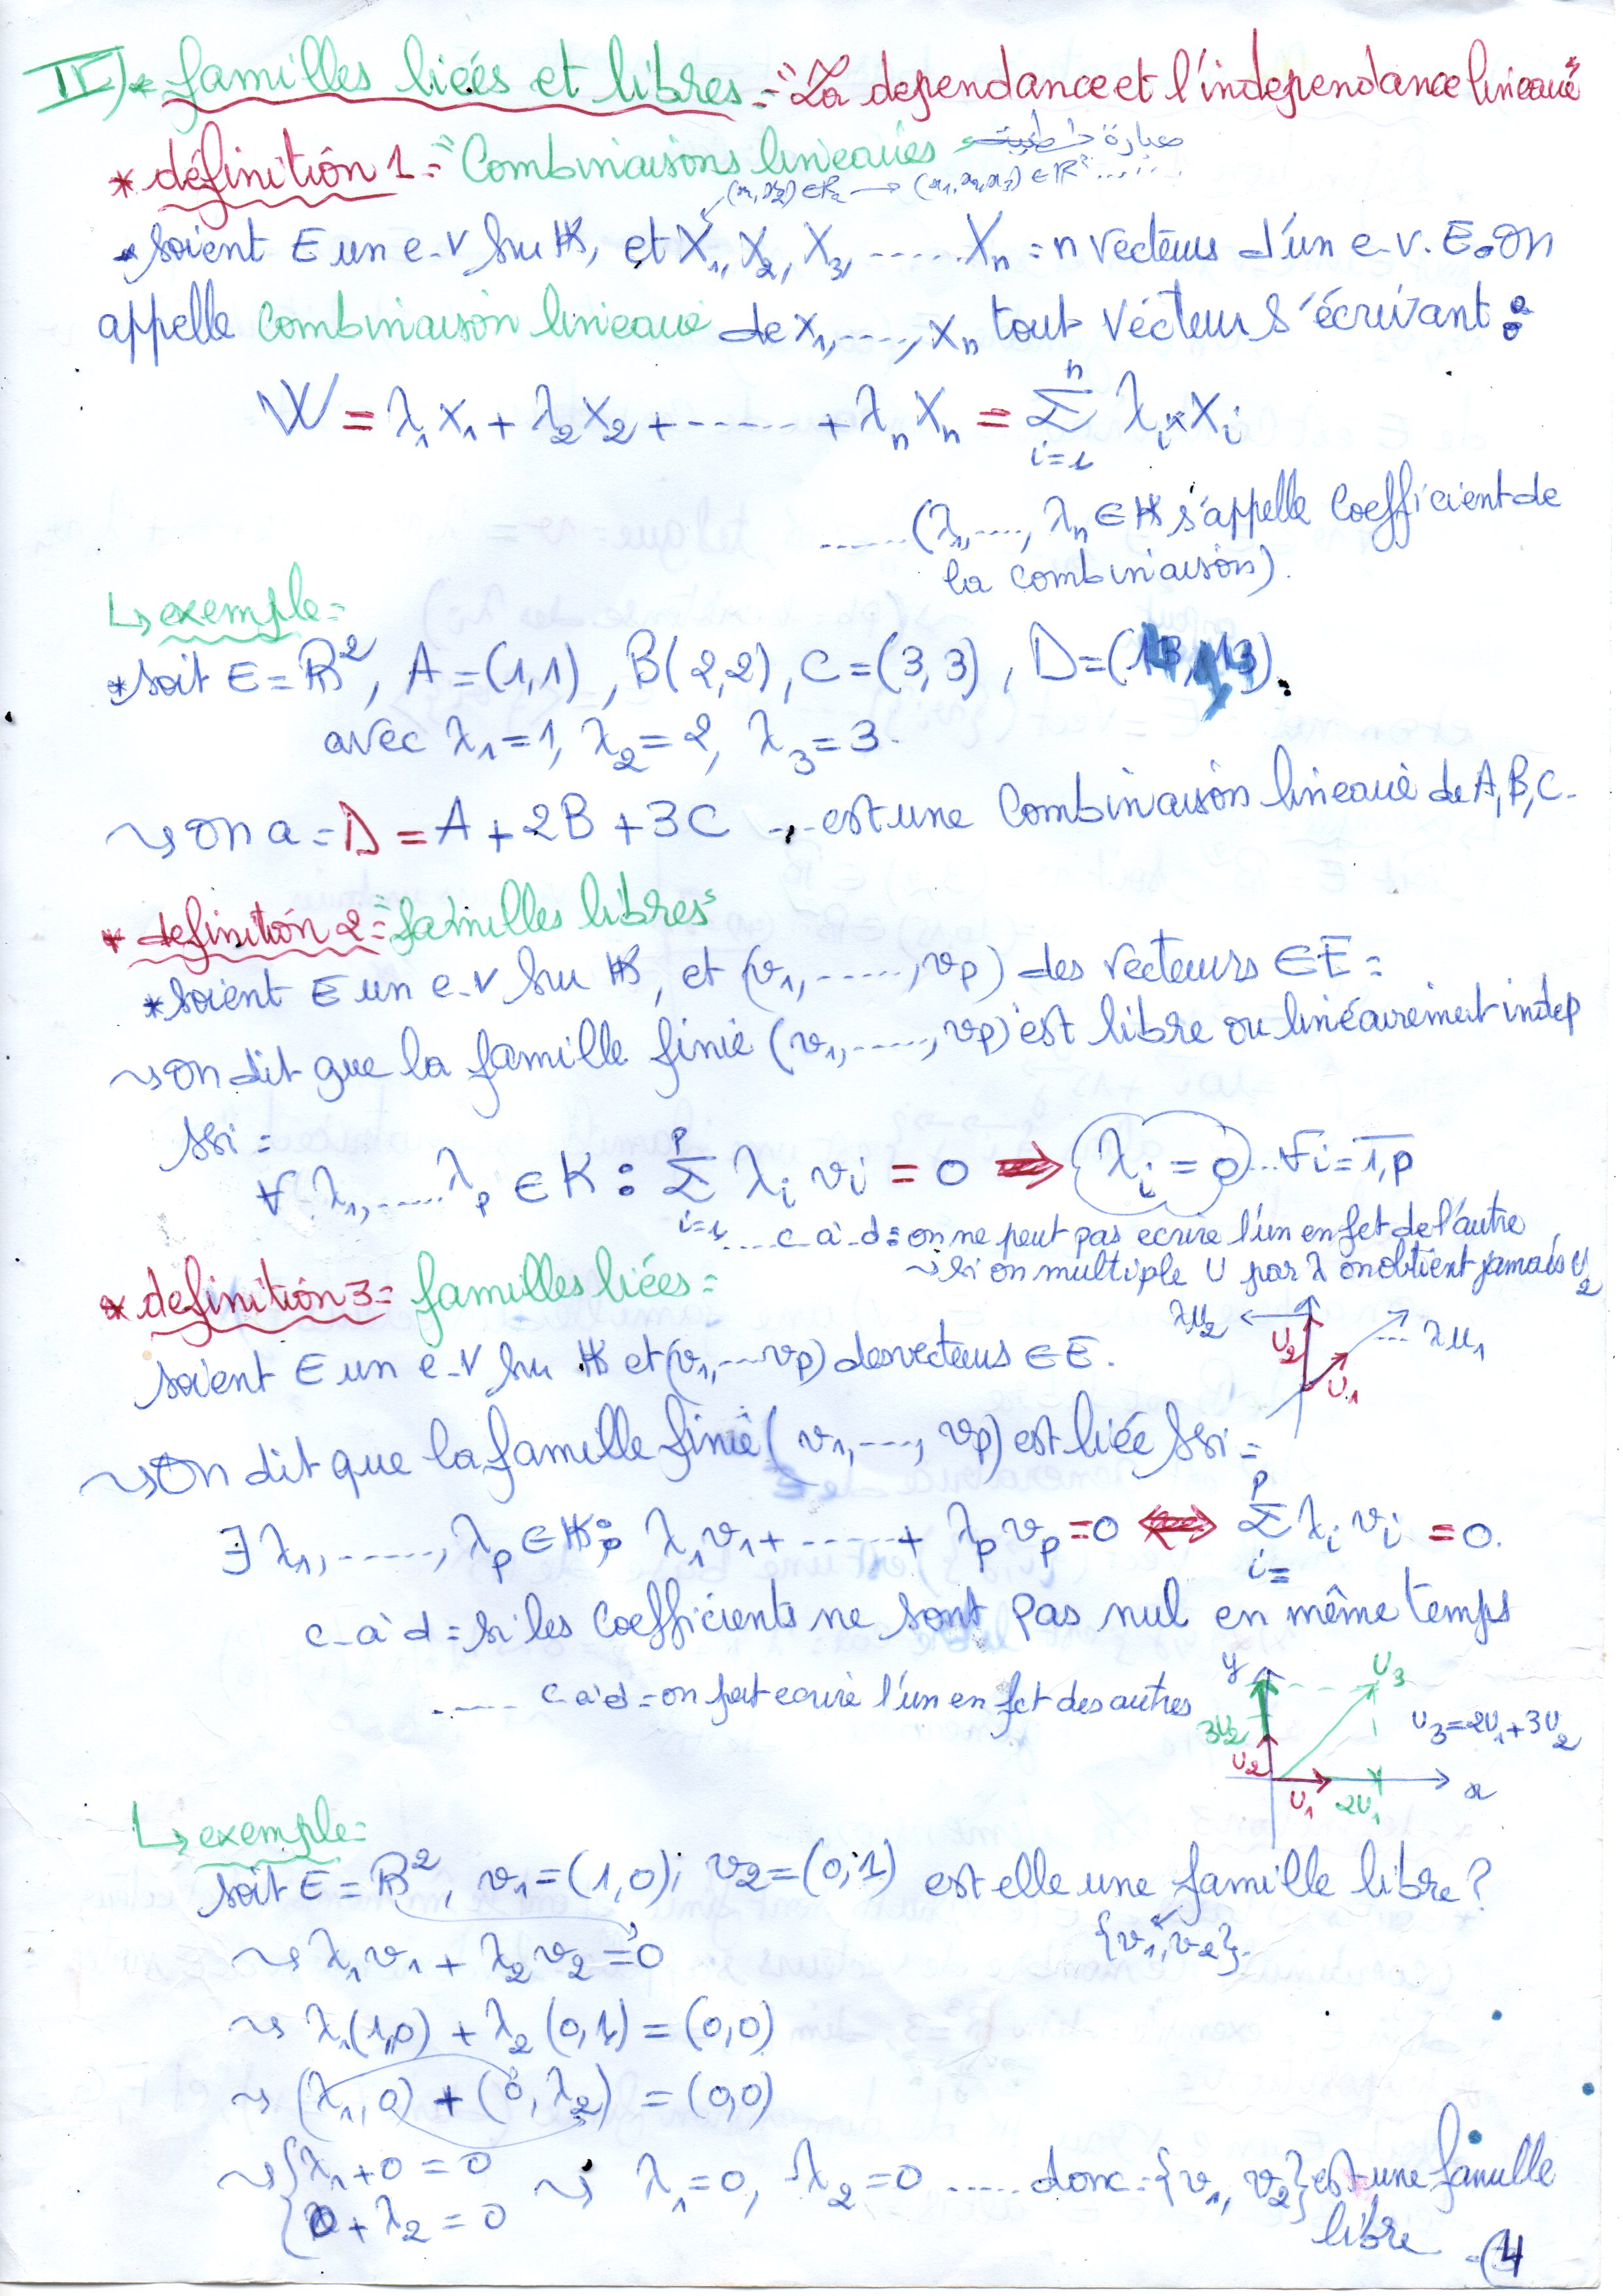 IV)* familles liées et libres = "La dependance et l'independance lineaire"
* définition 1 = "Combinaisons lineaires" عبارة خطية
(x1, x2) ∈ R2 → (x1, x2, x3) ∈ R3 ......
* soient E un e-v sur K, et X1, X2, X3, ...... Xn = n vecteurs d'un e-v. E. on
appelle combinaison lineaire de x1, ...., xn tout vecteur s'écrivant :
W = λ1 X1 + λ2 X2 + ...... + λn Xn = Σ(i=1 → n) λi × Xi
...... (λ1, ...., λn ∈ K s'appelle coefficient de
la combinaison).
↳ exemple =
* soit E = R², A = (1,1), B(2,2), C = (3,3), D = (14,14).
avec λ1 = 1, λ2 = 2, λ3 = 3.
⇝ on a = D = A + 2B + 3C ... est une combinaison lineaire de A, B, C.
* definition 2 = "familles libres"
* soient E un e-v sur K, et (v1, ......, vp) des vecteurs ∈ E =
⇝ on dit que la famille finie (v1, ......, vp) est libre ou linéairement indep
ssi =
∀ λ1, ...... λp ∈ K : Σ(i=1 → p) λi vi = 0 ⇒ λi = 0 ... ∀i = 1,p
.... c-à-d : on ne peut pas ecrire l'un en fct de l'autre
→ si on multiple U par λ on obtient jamais U2
* definition 3 = familles liées =
λu2 U2 U1 λu1
soient E un e-v sur K et (v1, ... vp) des vecteurs ∈ E.
⇝ On dit que la famille finie (v1, ...., vp) est liée ssi =
∃ λ1, ......, λp ∈ K ; λ1 v1 + ...... + λp vp = 0 ⇔ Σ(i= → p) λi vi = 0.
c-à-d = si les coefficients ne sont pas nul en même temps
..... c-à-d = on peut ecrire l'un en fct des autres
y U3
3U2 U3 = 2U1 + 3U2
U2
U1 2U1 x
↳ exemple =
soit E = R², v1 = (1,0); v2 = (0;1) est elle une famille libre ?
{v1, v2}.
⇝ λ1 v1 + λ2 v2 = 0
⇝ λ1(1,0) + λ2(0,1) = (0,0)
⇝ (λ1, 0) + (0, λ2) = (0,0)
⇝ { λ1 + 0 = 0 ⇝ λ1 = 0, λ2 = 0 ..... donc = {v1, v2} est une famille
{ 0 + λ2 = 0 libre
4